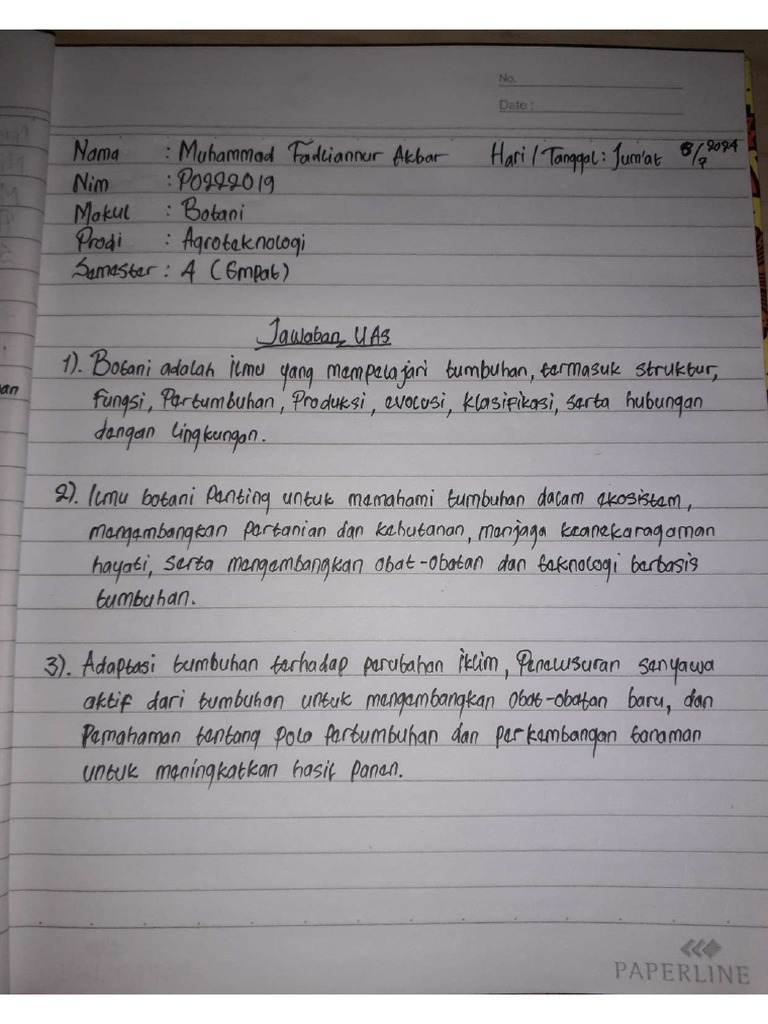 No.
Date :
Nama : Muhammad Fadliannur Akbar Hari / Tanggal : Jum'at 5/7 2024
Nim : P0222019
Makul : Botani
Prodi : Agroteknologi
Semester : 4 (Empat)
Jawaban UAS
1). Botani adalah ilmu yang mempelajari tumbuhan, termasuk struktur,
fungsi, Pertumbuhan, Produksi, evolusi, klasifikasi, serta hubungan
dengan lingkungan.
2). Ilmu botani Penting untuk memahami tumbuhan dalam ekosistem,
mengembangkan pertanian dan kehutanan, menjaga keanekaragaman
hayati, serta mengembangkan obat-obatan dan teknologi berbasis
tumbuhan.
3). Adaptasi tumbuhan terhadap perubahan iklim, Penelusuran senyawa
aktif dari tumbuhan untuk mengembangkan obat-obatan baru, dan
Pemahaman tentang pola Pertumbuhan dan perkembangan tanaman
untuk meningkatkan hasil panen.
an
PAPERLINE